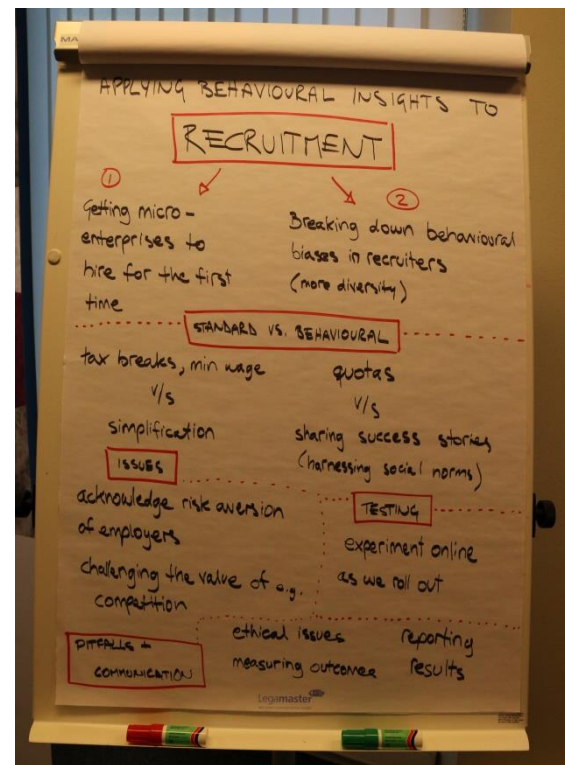 MA
APPLYING BEHAVIOURAL INSIGHTS TO
RECRUITMENT
1
Getting micro-
enterprises to
hire for the first
time
2
Breaking down behavioural
biases in recruiters
(more diversity)
STANDARD VS. BEHAVIOURAL
tax breaks, min wage
v/s
simplification
quotas
v/s
sharing success stories
(harnessing social norms)
ISSUES
acknowledge risk aversion
of employers
challenging the value of e.g.
competition
TESTING
experiment online
as we roll out
PITFALLS +
COMMUNICATION
ethical issues
measuring outcomes
reporting
results
Legamaster